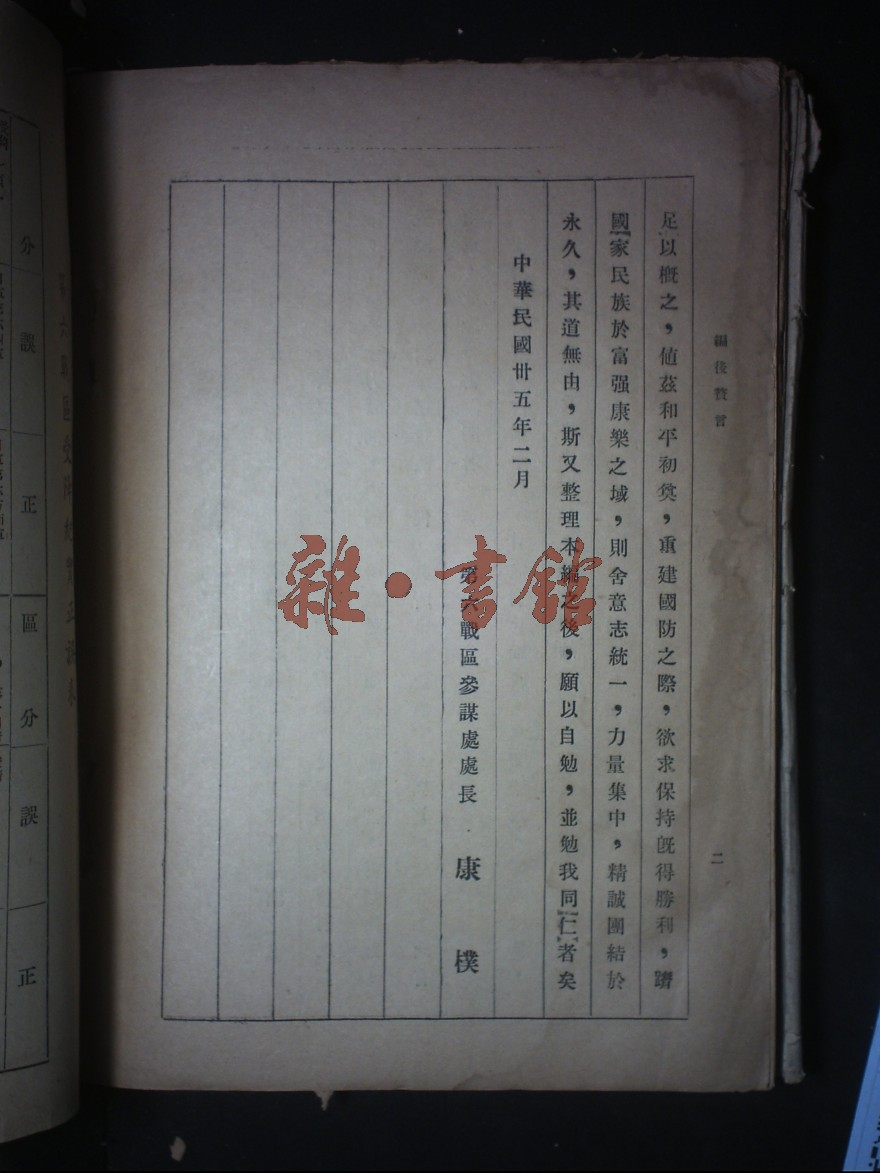 編後贅言
二
足以概之，值茲和平初奠，重建國防之際，欲求保持既得勝利，躋
國家民族於富强康樂之域，則舍意志統一，力量集中，精誠團結於
永久，其道無由，斯又整理本編之後，願以自勉，並勉我同仁者矣
中華民國卅五年二月
第六戰區參謀處處長 康樸
雜·書館
區分
誤
正
分
誤
正